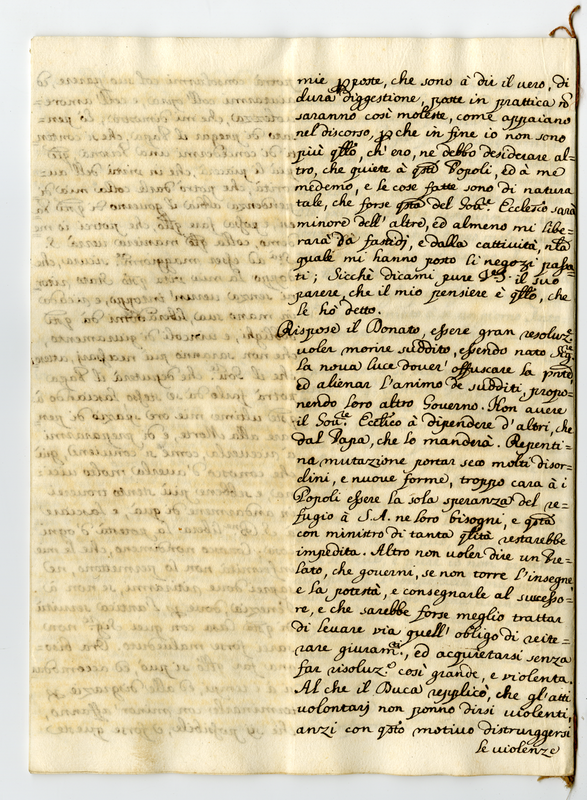 mie pposte, che sono à die il vero, di
dura diggestione, poste in prattica nõ
saranno così moleste, come appaiano
nel discorso, pche in fine io non sono
più qllo, ch'ero, ne debbo desiderare al=
tro, che quiete à qsti Popoli, ed à me
medemo, e le cose fatte sono di natura
tale, che forse qsta del Sou.e Ecclesio sarà
minore dell'altre, ed almeno mi libe=
rarà da fastidj, e dalla cattività, nlla
quale mi hanno posto li negozi passa
ti; Sicchè dicami pure il suo
parere, che il mio pensiere è qllo, che
le hò detto.
Rispose il Donato, essere gran resoluz.e
voler morire suddito, essendo nato Sig.re
la nova luce dover' offuscare la pnte,
ed alienar l'animo de sudditi propo=
nendo loro altro Governo. Non avere
il Sou.e Ecclico à dipendere d'altri, che
dal Papa, che lo manderà. Repenti=
na mutazione portar seco molti disor=
dini, e nuove forme, troppo cara à i
Popoli essere la sola speranza del re=
fugio à S.A. ne loro bisogni, e qsta
con ministro di tanta qlità restarebbe
impedita. Altro non voler dire un Pre=
lato, che governi, se non torre l'insegne
e la potestà, e consegnarle al successo=
re, e che sarebbe forse meglio trattar
di levare via quell' obligo di reite=
rare giuram.ti, ed acquietarsi senza
far risoluz.e così grande, e violenta.
Al che il Duca repplicò, che gl'atti
volontarj non ponno dirsi violenti,
anzi con qsto motivo distruggersi
le violenze